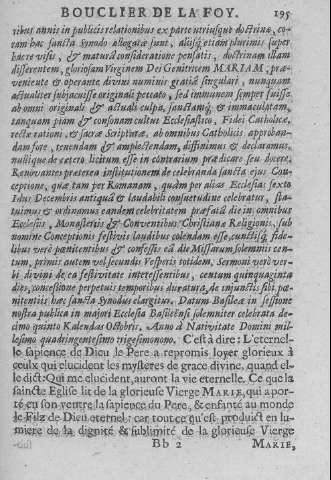 BOUCLIER DE LA FOY. 195
ribus annis in publicis relationibus ex parte utriusque doctrinæ, co-
ram hac sancta Synodo allegatæ sunt, aliisq́; etiam plurimis super
hac re visis, & matura consideratione pensatis, doctrinam illam
disserentem, gloriosam Virginem Dei Genitricem MARIAM, præ-
veniente & operante divini numinis gratia singulari, nunquam
actualiter subjacuisse originali peccato, sed immunem semper fuisse
ab omni originali & actuali culpa, sanctamq́; & immaculatam,
tanquam piam & consonam cultui Ecclesiastico, Fidei Catholicæ,
rectæ rationi, & sacræ Scripturæ, ab omnibus Catholicis approban-
dam fore, tenendam & amplectendam, diffinimus & declaramus,
nullique de cætero licitum esse in contrarium prædicare seu docere.
Renovantes præterea institutionem de celebranda sancta ejus Con-
ceptione, quæ tam per Romanam, quàm per alias Ecclesias sexto
Idus Decembris antiqua & laudabili consuetudine celebratur, sta-
tuimus & ordinamus eandem celebritatem præfata die in omnibus
Ecclesiis, Monasteriis & Conventibus Christianæ Religionis, sub
nomine Conceptionis festivis laudibus colendam esse, cunctisq́; fide-
libus verè pœnitentibus & confessis ea die Missarum solemniis cen-
tum, primis autem vel secundis Vesperis totidem, Sermoni verò ver-
bi divini de ea festivitate interessentibus, centum quinquaginta
dies, concessione perpetuis temporibus duratura, de injunctis sibi pœ-
nitentiis hæc sancta Synodus elargitur. Datum Basileæ in sessione
nostra publica in majori Ecclesia Basileensi solemniter celebrata de-
cimo quinto Kalendas Octobris, Anno à Nativitate Domini mil-
lesimo quadringentesimo trigesimonono. C'est à dire: L'eternel-
le sapience de Dieu le Pere a repromis loyer glorieux à
ceulx qui elucident les mysteres de grace divine, quand el-
le dict: Qui me elucident, auront la vie eternelle. Ce que la
saincte Eglise lit de la glorieuse Vierge MARIE, qui a por-
té en son ventre la sapience du Pere, & enfanté au monde
le Filz de Dieu eternel: car tout ce qu'est produict en lu-
miere de la dignité & sublimité de la glorieuse Vierge
Bb 2 MARIE,